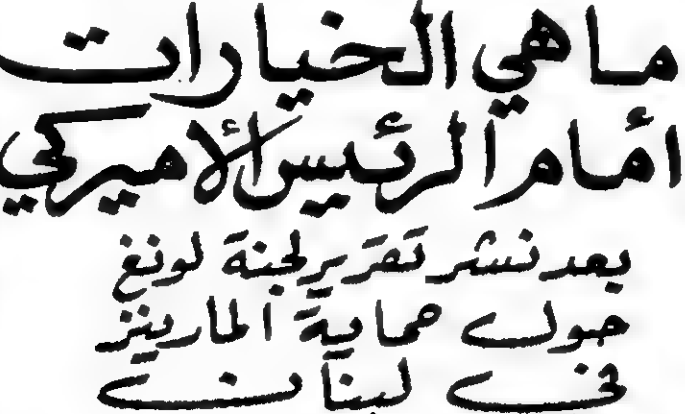 ما هي الخيارات
أمام الرئيس الأميركي
بعد نشر تقرير لجنة لونغ
حول حماية المارينز
في لبنان